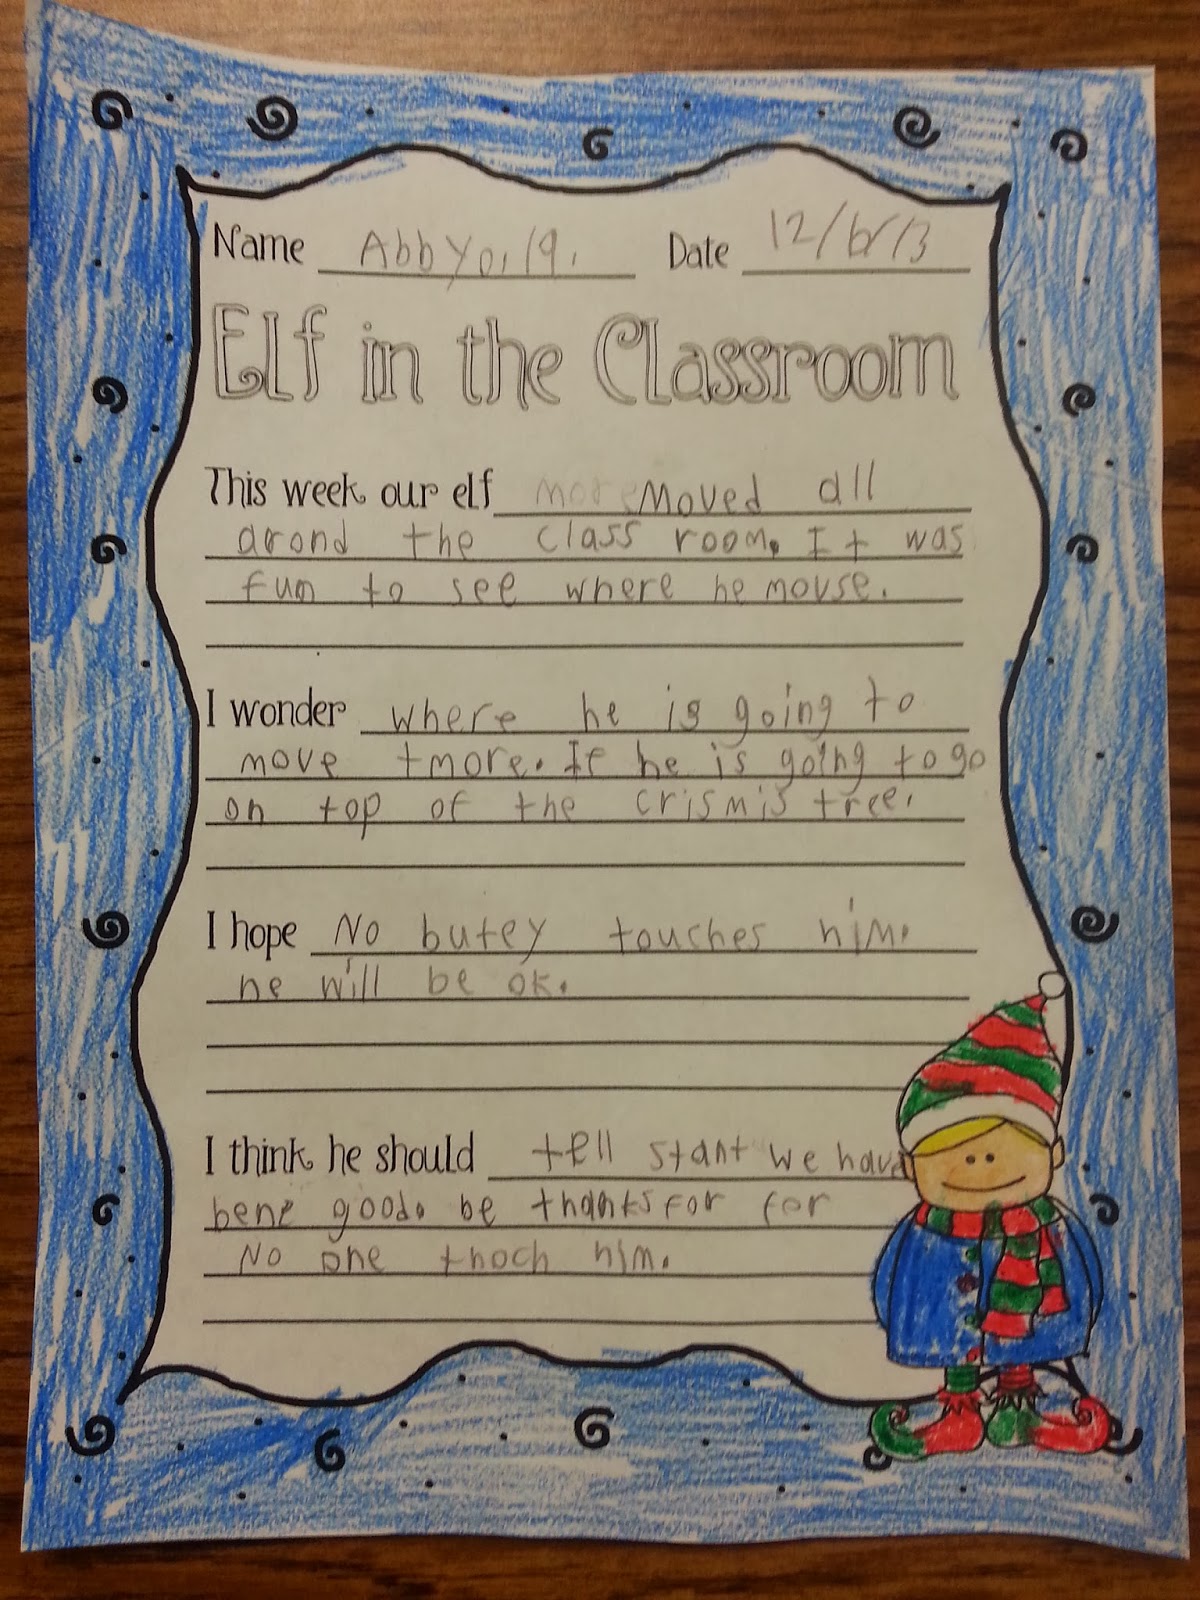 Name Abby o. 19. Date 12/6/13
Elf in the Classroom
This week our elf moved all
arond the class room. It was
fun to see where he mouse.
I wonder where he is going to
move tmore. If he is going to go
on top of the crismis tree.
I hope No butey touches him.
he will be ok.
I think he should tell stant we have
bene good. be thanksfor for
No one thoch him.